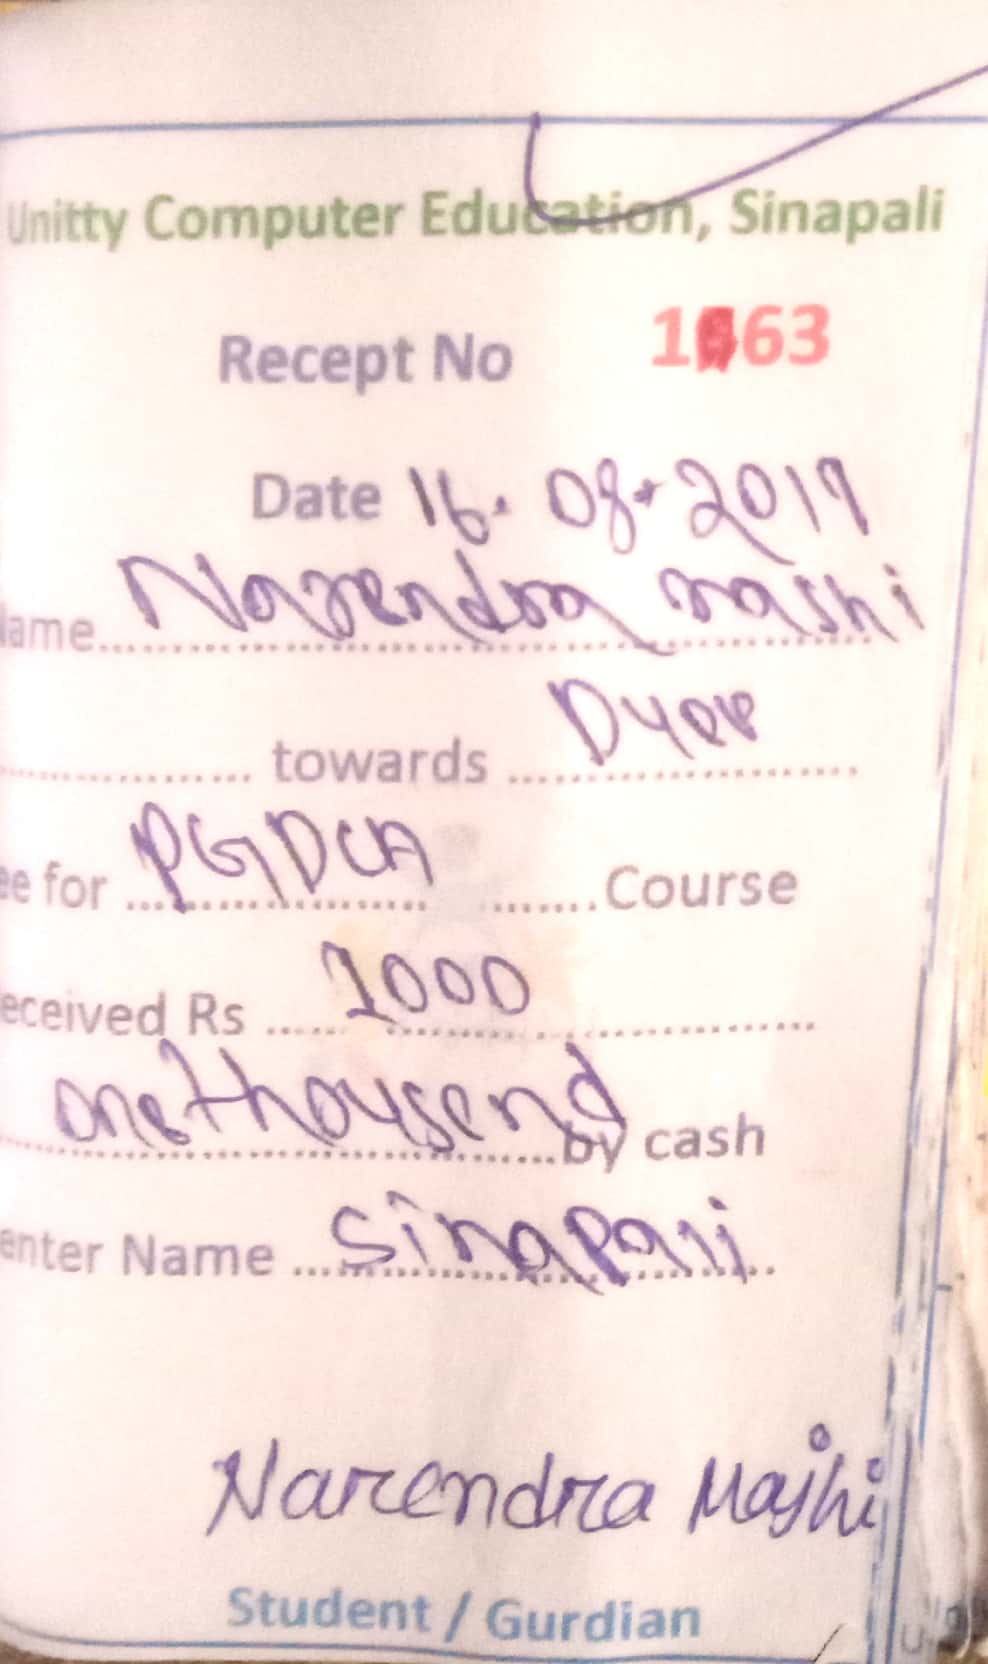 Unitty Computer Education, Sinapali
Recept No 1 63
Date 16.08.2019
ame Narendra mashi
towards Dyer
ee for PGDCA Course
eceived Rs 1000
one thousend by cash
enter Name Sinapali
Narendra Majhi
Student / Gurdian